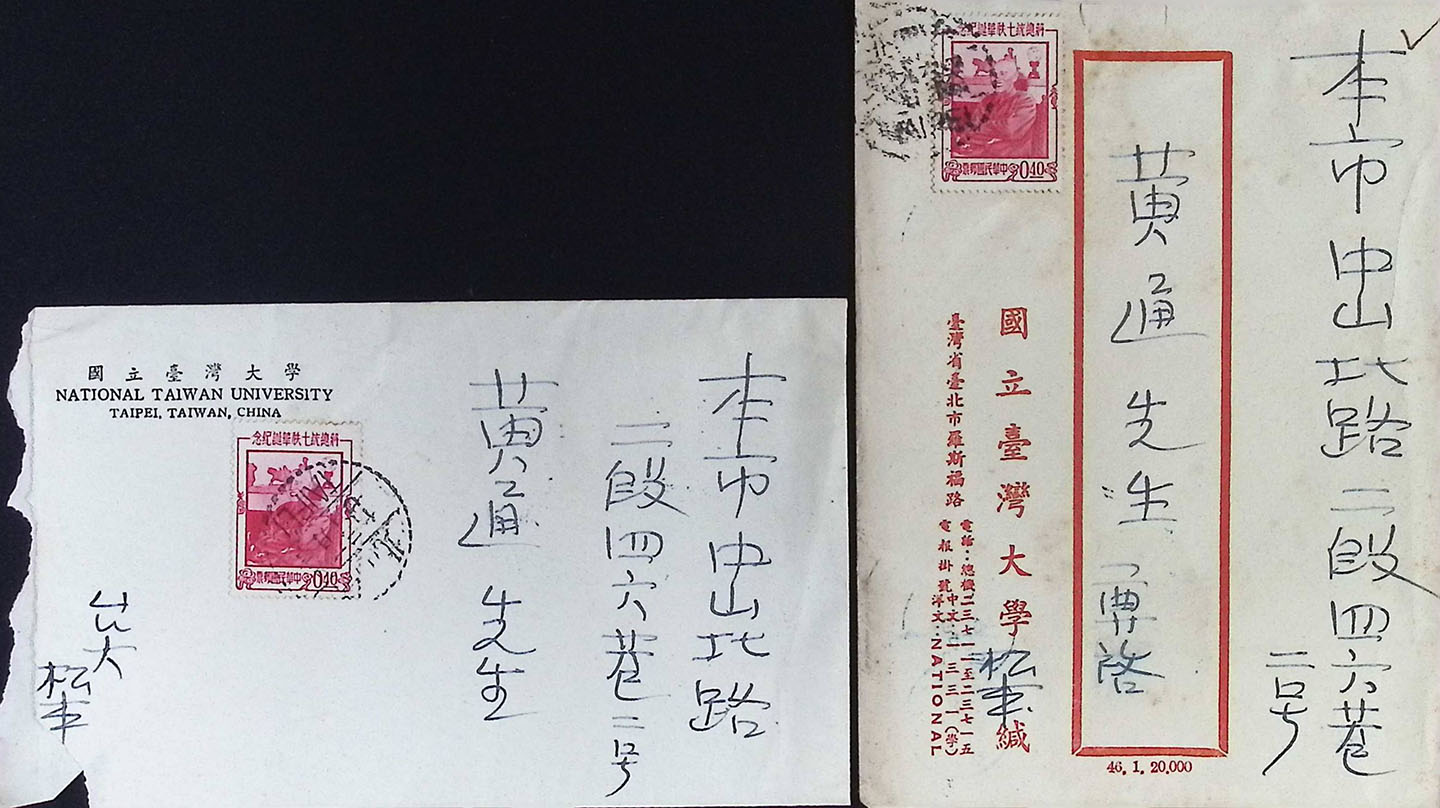 國立臺灣大學
NATIONAL TAIWAN UNIVERSITY
TAIPEI, TAIWAN, CHINA
蔣總統七秩華誕紀念
中華民國郵票 0.40
本市中山北路
二段四六巷二号
黃通先生
台大
松本
蔣總統七秩華誕紀念
中華民國郵票 0.40
本市中山北路二段四六巷
二号
黃通先生 專啓
國立臺灣大學 松本 緘
臺灣省臺北市羅斯福路
電話：總機二三七一一至二三七一五
電報掛號 中文：一三三一(學)
洋文：NATIONAL
46. 1. 20,000